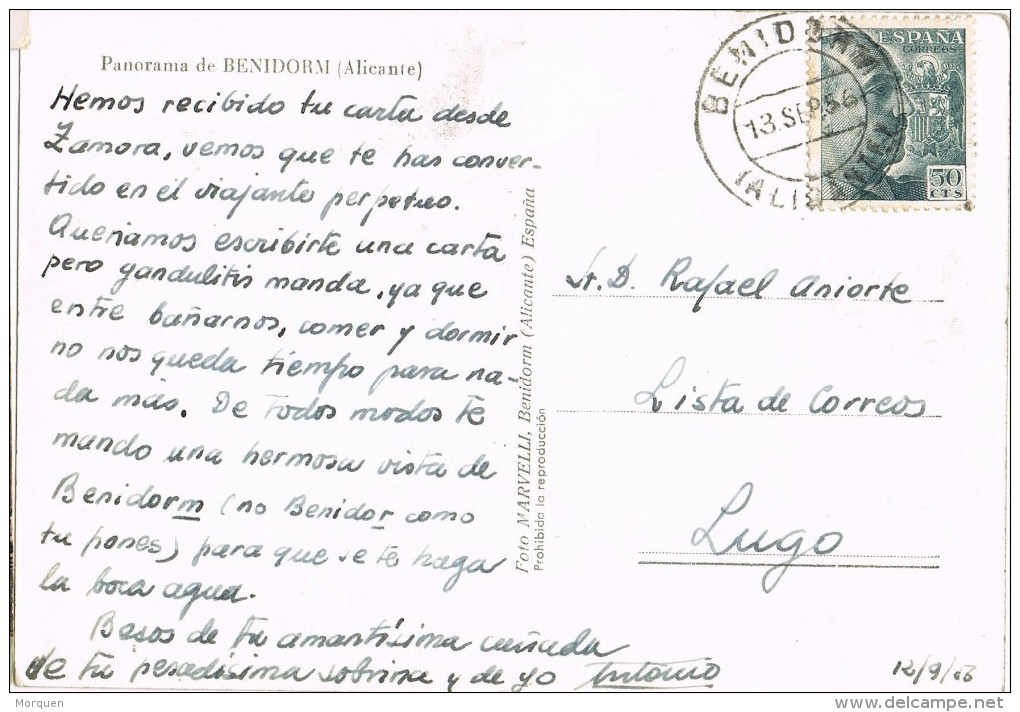 Panorama de BENIDORM (Alicante)
Hemos recibido tu carta desde
Zamora, vemos que te has conver-
tido en el viajante perpetuo.
Queriamos escribirte una carta
pero gandulitis manda, ya que
entre bañarnos, comer y dormir
no nos queda tiempo para na-
da más. De todos modos te
mando una hermosa vista de
Benidorm (no Benidor como
tu pones) para que se te haga
la boca agua.
Besos de tu amantísima cuñada
de tu pesadísima sobrina y de yo Antonio
Foto MARVELLI, Benidorm (Alicante) España
Prohibida la reproducción
BENIDORM
13 SEP. 56
(ALICANTE)
ESPAÑA
CORREOS
50
CTS
Sr. D. Rafael Aniorte
Lista de Correos
Lugo
12/9/56
Morquen
delcampe.net